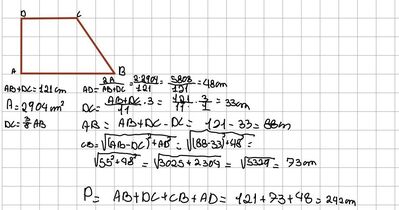 D C
A B
AB+DC=121cm AD= 2A/AB+DC = 2·2904/121 = 5808/121 = 48cm
A=2904m² DC= AB+DC/11 ·3 = 121/11 · 3/1 = 33cm
DC= 3/8 AB AB= AB+DC-DC= 121-33= 88cm
CB=√(AB-DC)²+AD² = √(88-33)²+48² =
√55²+48² = √3025+2304 = √5329 = 73cm
P= AB+DC+CB+AD= 121+73+48= 242cm